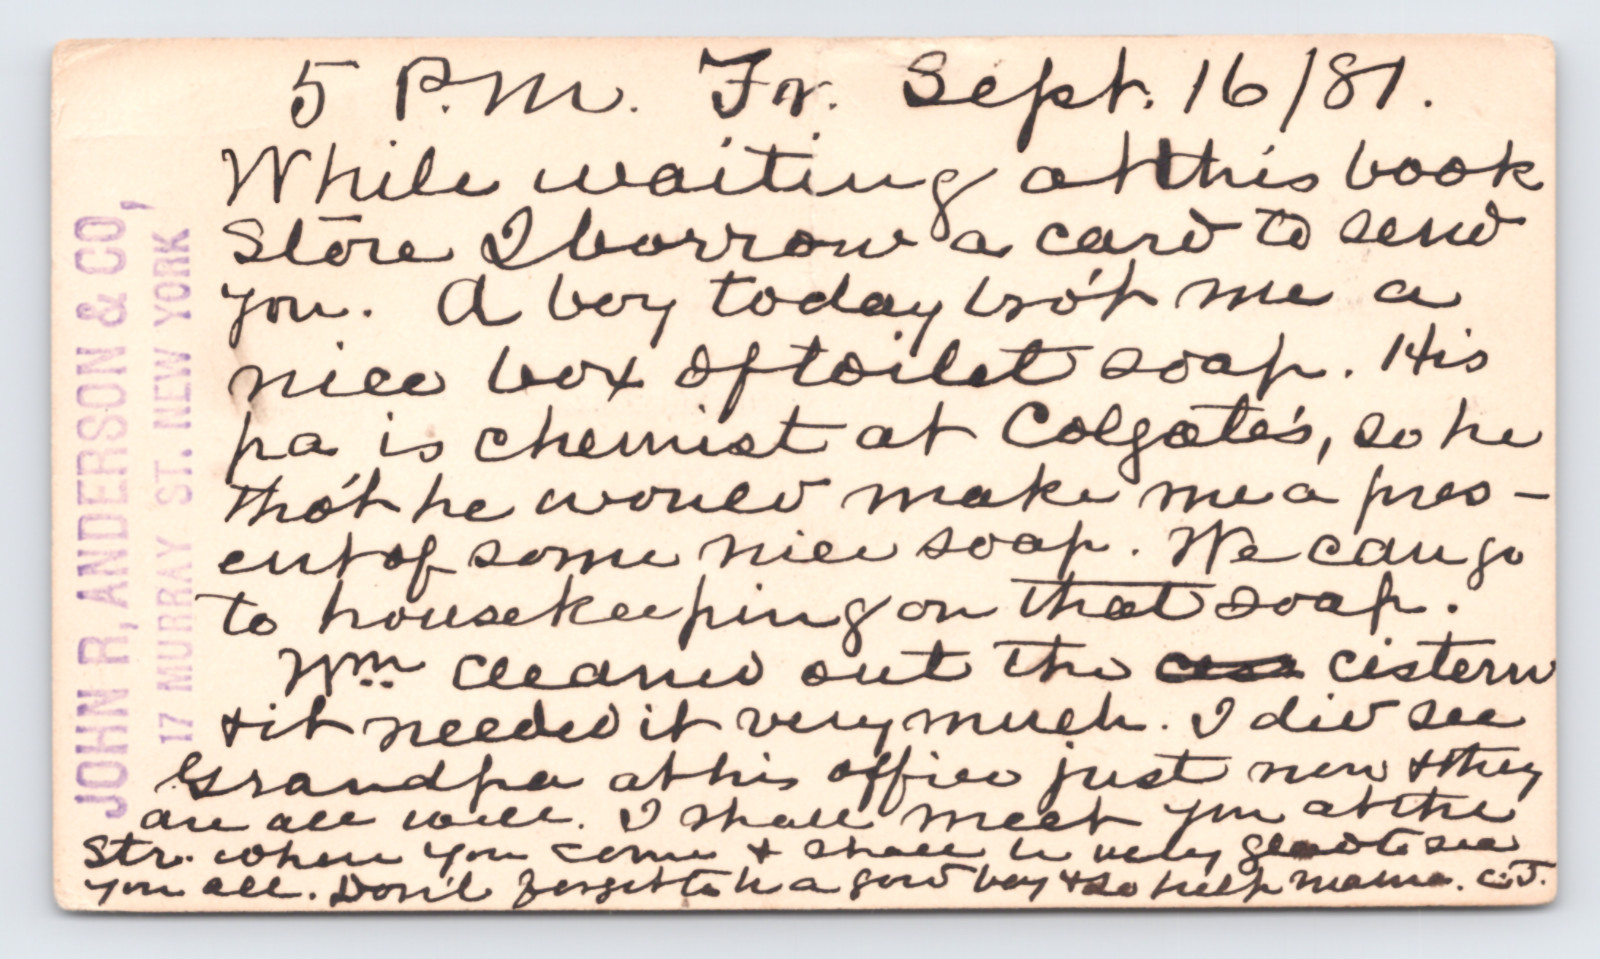 JOHN R, ANDERSON & CO,
17 MURRAY ST. NEW YORK
5 P.M. Fr. Sept. 16/81.
While waiting at this book
store I borrow a card to send
you. A boy today bro't me a
nice box of toilet soap. His
pa is chemist at Colgate's, so he
tho't he would make me a pres-
ent of some nice soap. We can go
to housekeeping on that soap.
Wm cleaned out the cistern
& it needed it very much. I did see
Grandpa at his office just now & they
are all well. I shall meet you at the
Str. when you come & shall be very glad to see
you all. Don't forget to be a good boy & so help mama. C.J.